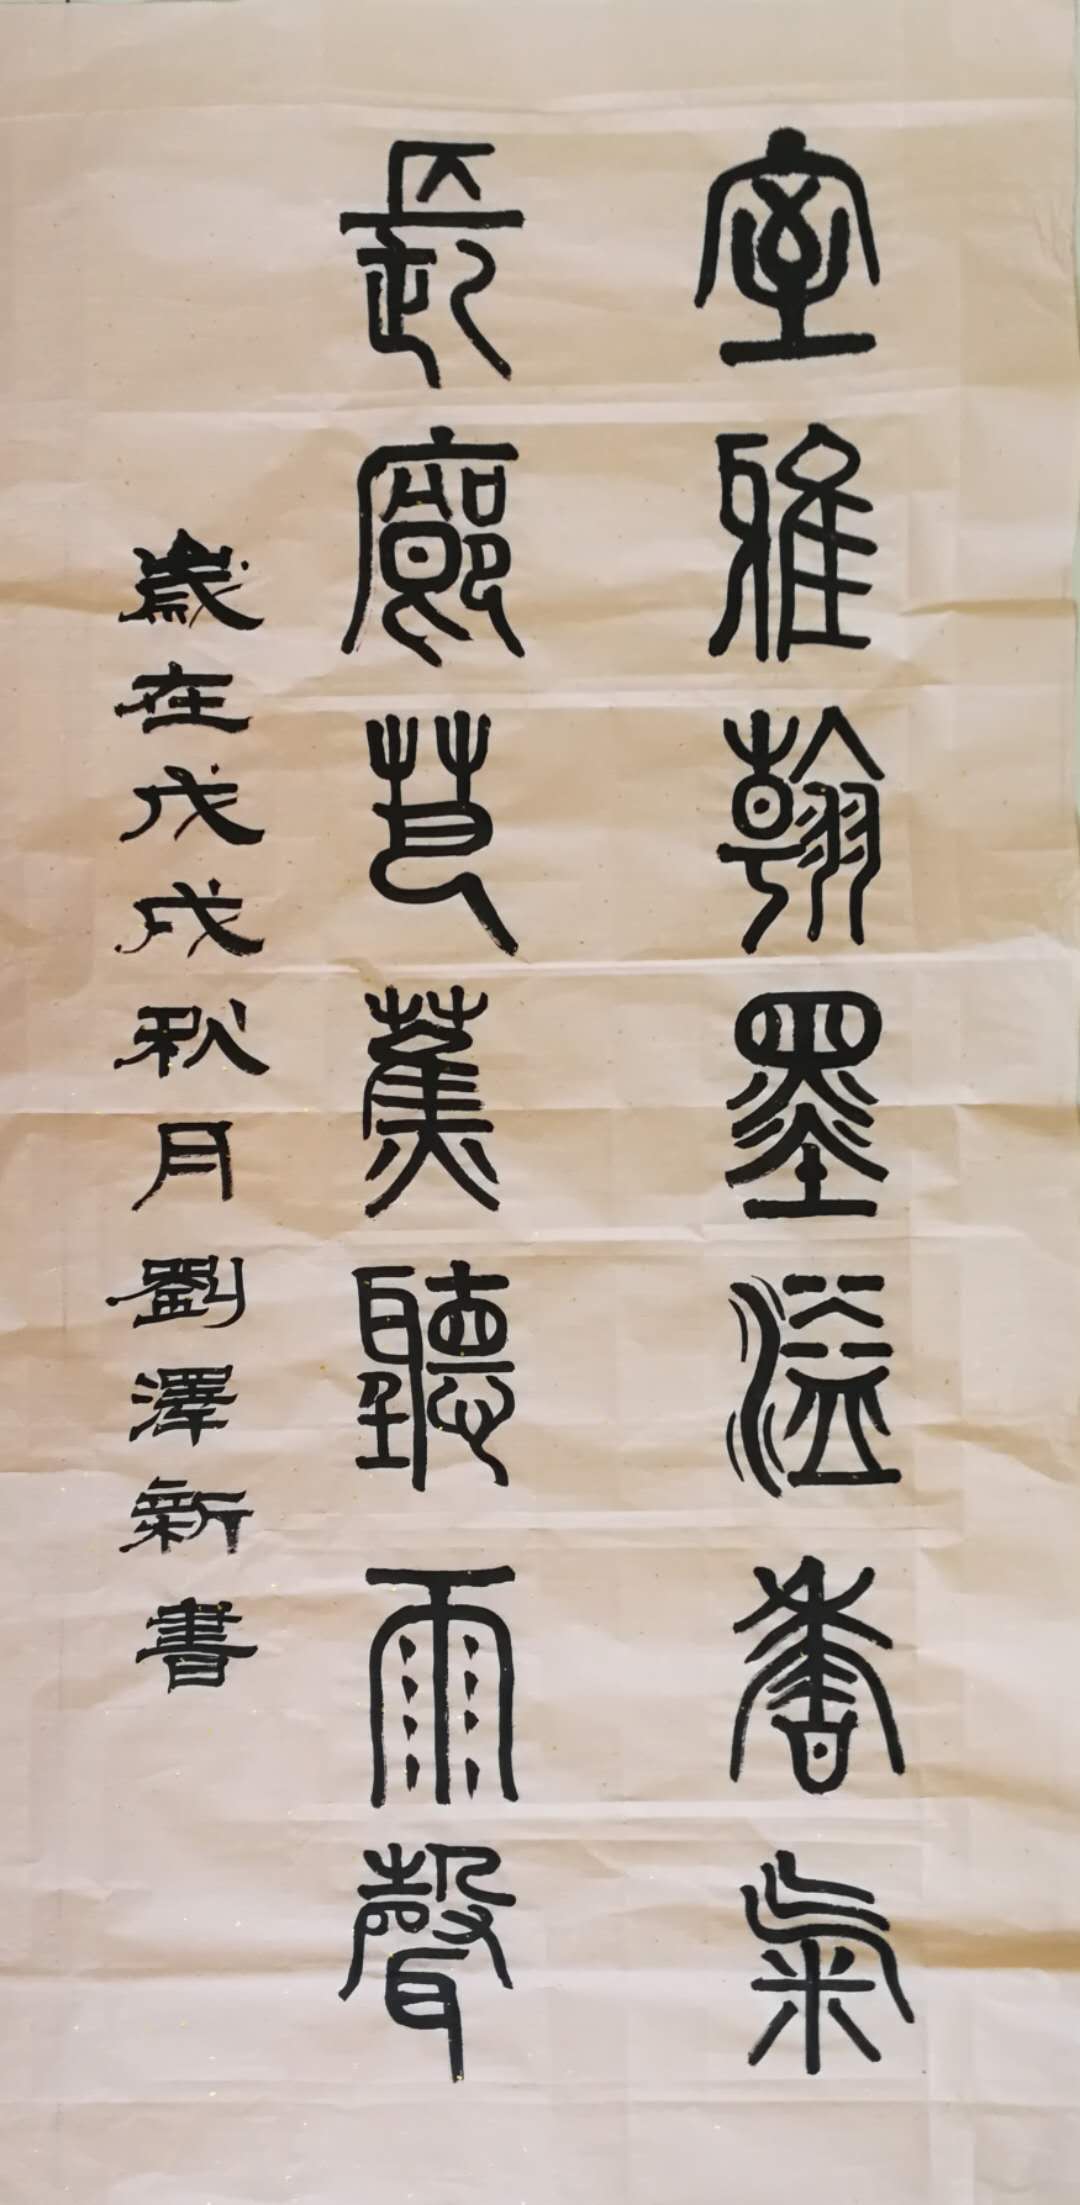 室雅翰墨溢香氣
長廊芭蕉聽雨聲
歲在戊戌秋月劉澤新書